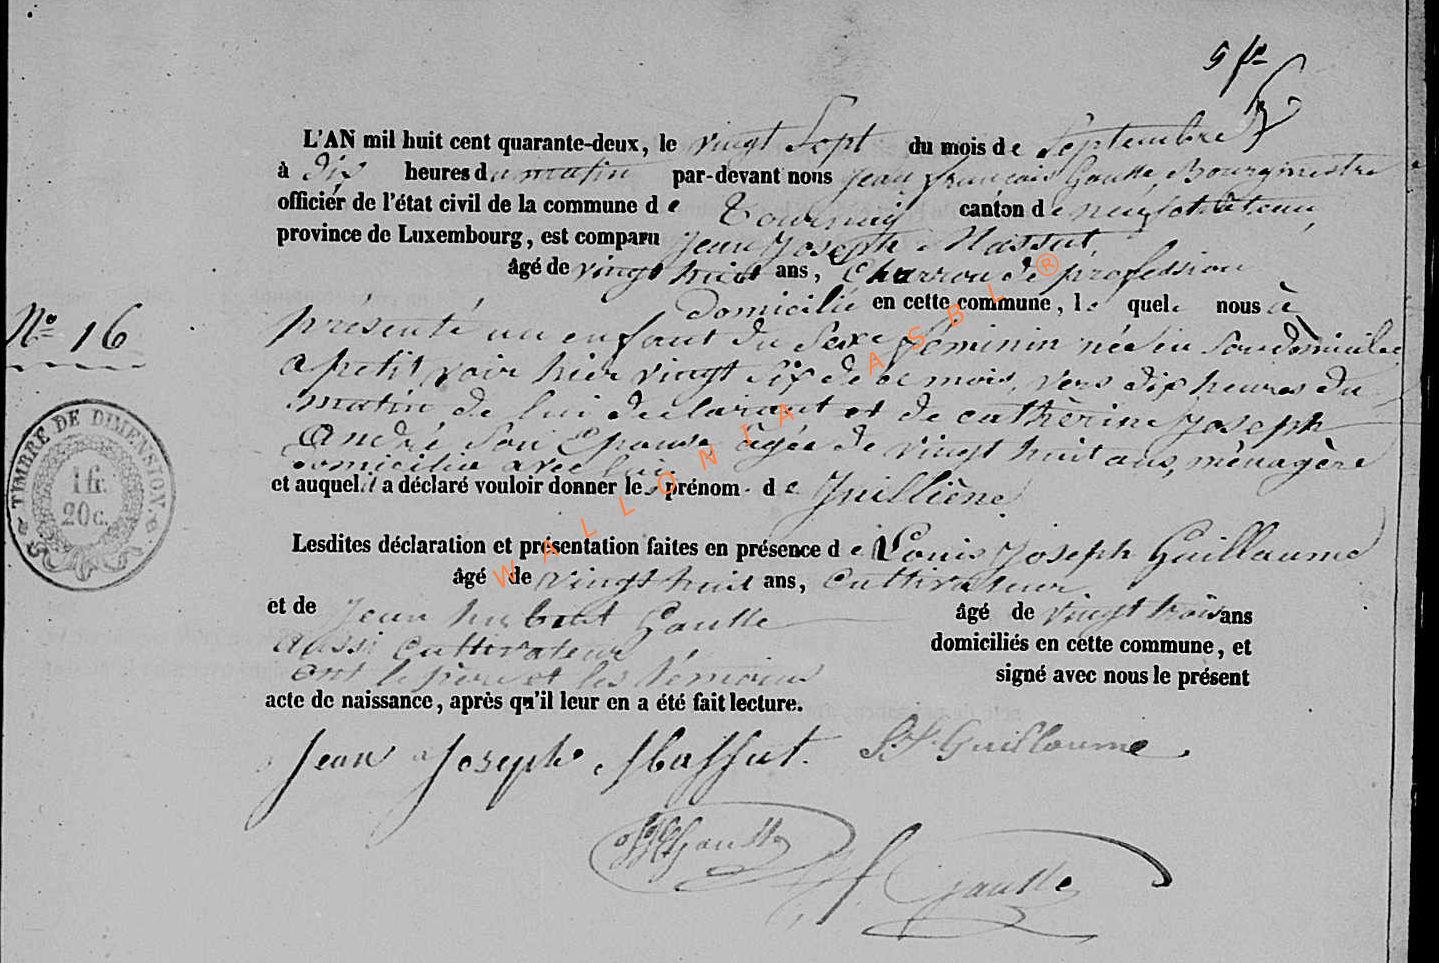 5 fe
L'AN mil huit cent quarante-deux, le vingt Sept du mois de Septembre
à dix heures du matin par-devant nous Jean françois Goutte, Bourgmestre
officiér de l'état civil de la commune de Tournay canton de neufchateau,
province de Luxembourg, est comparu Jean Joseph Massut,
âgé de vingt huit ans, Charron de profession
domicilié en cette commune, le quel nous à
N° 16
présenté un enfant du Sexe feminin née en son domicile
a petit voir hier vingt Six de ce mois, vers dix heures du
matin de lui declarant et de cathèrine Joseph
André Son Epouse, âgée de vingt huit ans, mènagère
domiciliée avec lui
et auquel il a déclaré vouloir donner les prénom de Juilliène
Lesdites déclaration et présentation faites en présence de Louis Joseph Guillaume
âgé de vingt huit ans, Cultivateur
et de Jean hubert Goutte âgé de vingt trois ans
aussi Cultivateur domiciliés en cette commune, et
ont le père et les témoins signé avec nous le présent
acte de naissance, après qu'il leur en a été fait lecture.
Jean Joseph Massut. L. J. Guillaume
JH Goutte
J. f. Goutte
TIMBRE DE DIMENSION.
1 fr.
20 c.
WALLONIA ASBL ®